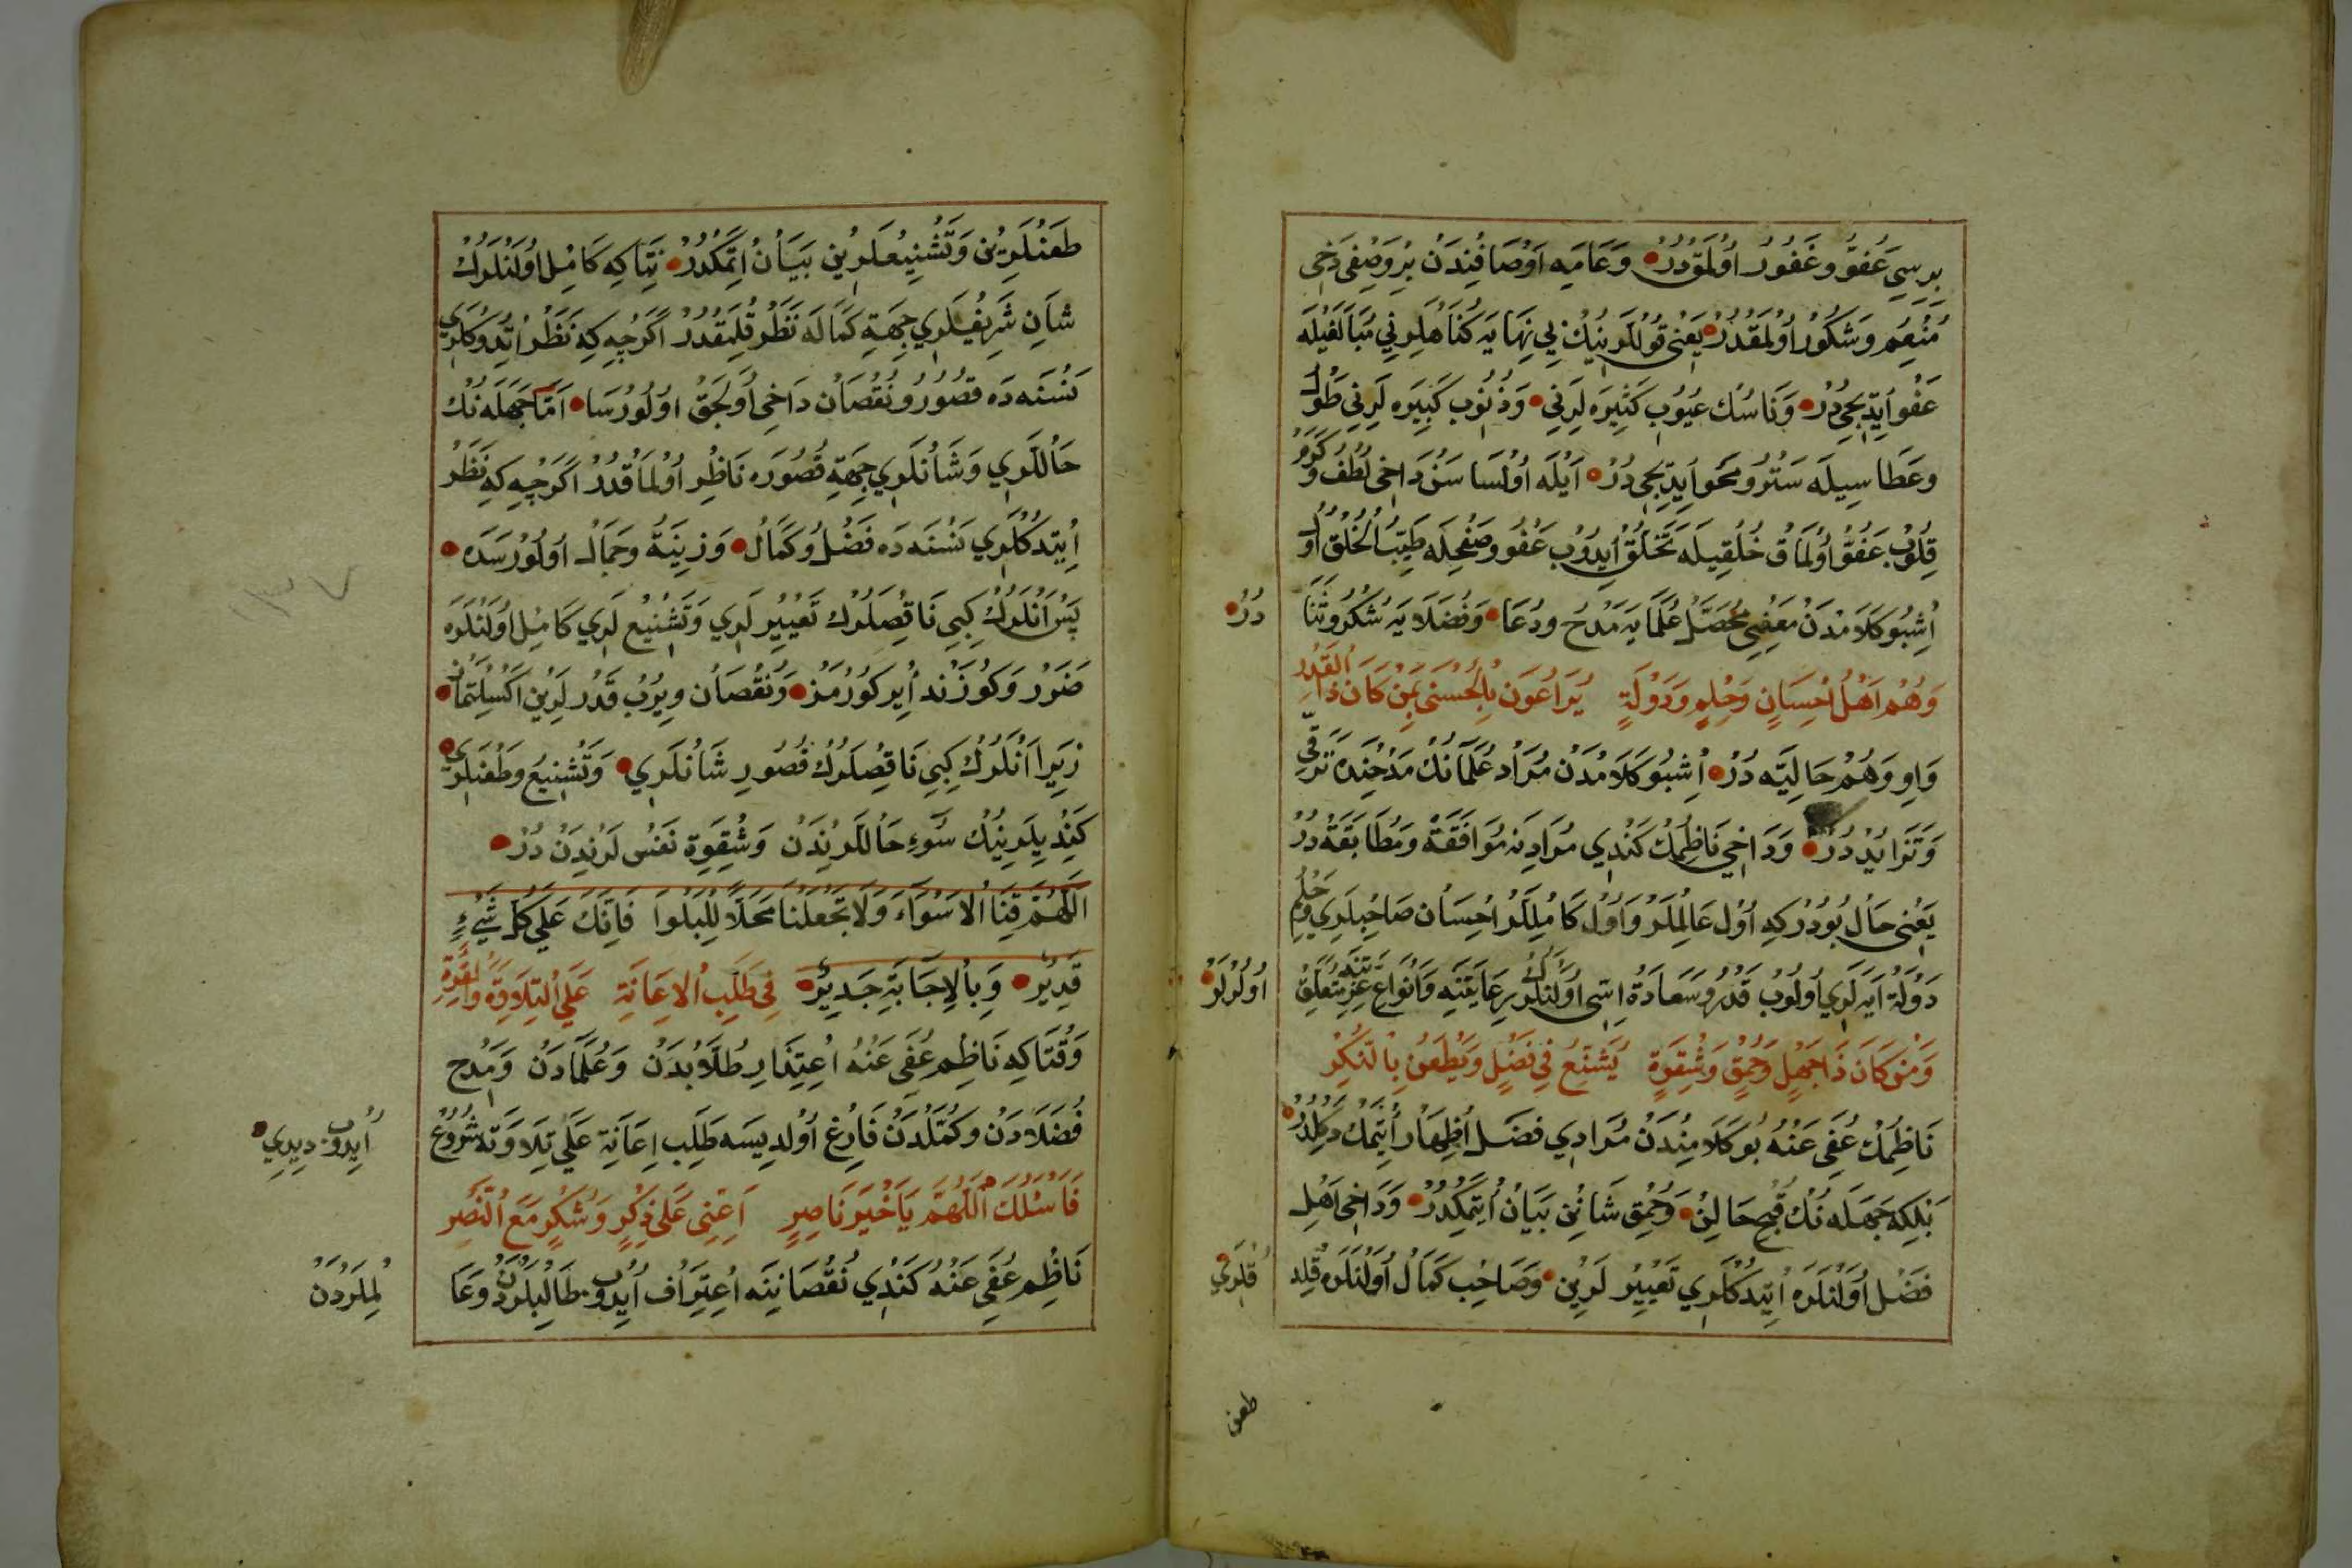 بِرِسِي عَفُوّ وغَفُورْ اُولْمَقْدُرْ وَعَامِه اَوْصَافِندَنْ بِرْوَصْفِى دَخِى
مُنْعِم وَشَكُورْ اُولْمَقْدُرْ يَعْنِى قُولْلَرِنِكْ بِي نِهَايَه كُنَاهْلَرِنِي مُبَالَغَيْلَه
عَفْو اَيْدِيجِى دُرْ وَنَاسُكْ عُيُوبِ كَثِيرَه لَرِنِي وَذُنُوبِ كَبِيرَه لَرِنِي طَوْل
وعَطَاسِيلَه سَتْرُو مَحَو اَيْدِيجِى دُرْ اَيْلَه اُولْسَا سَنْ دَاخِى لُطْفُ وكَرَمْ
قِلُوبْ عَفُوّ اُولْمَاقْ خُلْقِيلَه تَخَلُّقْ اَيْدُوبْ عَفُوو صَفْحِلَه طَيِّبُ الْخُلُقْ اُولْ
اُشْبُو كَلَامْدَنْ مَعْنِيِ مُحَصَّلْ عُلَمَايَه مَدْح ودُعَا وَفُضَلَايَه شُكْرُو ثَنَا دُرْ
وَهُمْ اَهْلُ اِحْسَانٍ وَحِلْمٍ وَدَوْلَةٍ يُرَاعُونَ بِالْحُسْنَى مَنْ كَانَ ذَا الْقَدْرِ
وَاوِ وَهُمْ حَالِيَّه دُرْ اُشْبُو كَلَامْدَنْ مُرَادْ عُلَمَانُكْ مَدْحِنْدَه تَرَقِّي
وَتَزَايُدْ دُرْ وَدَاخِي نَاظِمُكْ كَنْدِي مُرَادِنَه مُوَافَقَةْ وَمُطَابَقَةْ دُرْ
يَعْنِى حَالْ بُودُرْكِه اُولْ عَالِمْلَرْ وَاُولْ كَامِلْلَرْ اِحْسَانْ صَاحِبلَرِي وحِلْم
دَوْلَةْ اَيَه لَرِي اُولُوبْ قَدْرُو سَعَادَةْ اِسِّى اُولَنْلَرُكْ رِعَايَتِنَه وَاَنْوَاعِ عِزَّتِنَه مُتَعَلِّقْ اُولُرْلَرْ
وَمَنْ كَانَ ذَا جَهْلٍ وَحُمْقٍ وَشِقْوَةٍ يُشَنِّعُ فِي فَضْلٍ وَيَطْعَنُ بِالنُّكْرِ
نَاظِمُكْ عُفِىَ عَنْهُ بُو كَلَامِنْدَنْ مُرَادِي فَضَل اِظْهَارْ اِتْمَكْ دَكِلْدُرْ
بَلِكِه جَهَلَه نُكْ قُبْحِ حَالِنْ وَحُمْقِ شَانِنْ بَيَانْ اِتْمَكْدُرْ وَدَاخِى اَهْلِ
فَضْل اُولَنْلَرَه اِتْدِكْلَرِي تَعْيِيرْلَرِينْ وَصَاحِبِ كَمَالْ اُولَنْلَرَه قِلْدِقْلَرِي
طعن
طَعْنْلَرِينْ وَتَشْنِيعْلَرِينْ بَيَانْ اِتْمَكْدُرْ نِتَاكِه كَامِلْ اُولَنْلَرُكْ
شَانِ شَرِيفْلَرِي جِهَةِ كَمَالَه نَظَرْ قِلْمَقْدُرْ اَكَرْچِه كِه نَظَرْ اِتْدِوكْلَرِي
نَسْنَه دَه قصُورُو نُقْصَانْ دَاخِى اُولْجَقْ اوُلُورْسَا اَمَّا جَهَلَه نُكْ
حَالْلَرِي وَشَانْلَرِي جِهَةِ قُصُورَه نَاظِرْ اُولْمَاقْدُرْ اَكَرْچِه كِه نَظَرْ
اِيتدِكْلَرِي نَسْنَه دَه فَضْلُ وكَمَالْ وَزِينَةُ وجَمَالْ اُولُورْسَدَه
پَسْ اَنْلَرُكْ كِبِي نَاقِصْلَرُكْ تَعْيِيرْلَرِي وَتَشْنِيعْ لَرِي كَامِلْ اُولَنْلَرَه
ضَرَرْ وَكُوزَنْد اِيركُورْمَزْ وَنُقْصَانْ وِيرُبْ قَدْرلَرِينْ اَكْسِلْتمَاز
زِيرَا اَنْلَرُكْ كِبِي نَاقِصْلَرُكْ قُصُورِ شَانْلَرِي وَتَشْنِيعْ وطَعْنلَرِي
كَنْدِيلَرِينُكْ سُوءِ حَالْلَرِنْدَنْ وَشِقْوَةِ نَفْسْ لَرِنْدَنْ دُرْ
اللّٰهُمَّ قِنَا الْاَسْوَاءَ وَلَا تَجْعَلْنَا مَحَلًّا لِلْبَلْوَا فَاِنَّكَ عَلَي كُلِّ شَيْءٍ
قَدِيرْ وَبِالْاِجَابَةِ جَدِيرْ فِى طَلَبِ الْاِعَانَةِ عَلَي التِّلَاوَةِ والْقُوَّةِ
وَقْتَاكِه نَاظِم عُفِىَ عَنْهُ اِعْتِذَارِ طُلَّابْدَنْ وَعُلَمَادَنْ وَمَدْحِ
فُضَلَادَنْ وكَمَّلْدَنْ فَارِغ اُولْدِيسَه طَلَبِ اِعَانَةِ عَلَي تِلَاوَتَه شُرُوعْ اَيْدُوبْ دِيدِي
فَاَسْئَلُكَ اللّٰهُمَّ يَا خَيْرَ نَاصِرٍ اَعِنِّى عَلَى ذِكْرٍ وَشُكْرٍ مَعَ النَّصْرِ
نَاظِم عُفِىَ عَنْهُ كَنْدِي نُقْصَانِينَه اِعْتِرَافْ اَيْدُوبْ طَالِبْلَرْدَنْ وعَالِمْلَرْدَنْ